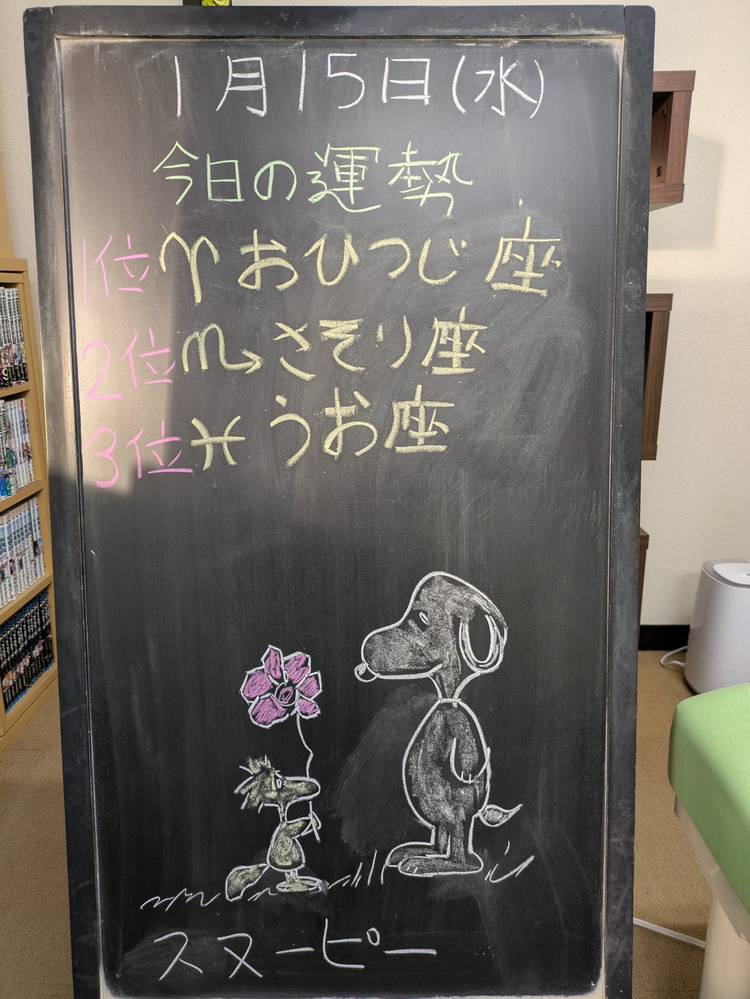 1月15日(水)
今日の運勢
1位♈おひつじ座
2位♏さそり座
3位♓うお座
スヌーピー